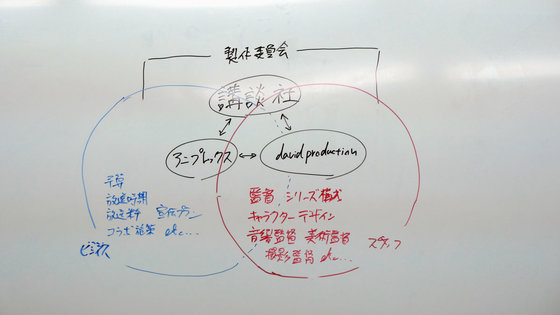 製作委員会
講談社
アニプレックス
david production
予算
放送時期
放送料 宣伝プラン
コラボ施策 etc...
ビジネス
監督、シリーズ構成
キャラクターデザイン
音響監督 美術監督
撮影監督 etc...
スタッフ